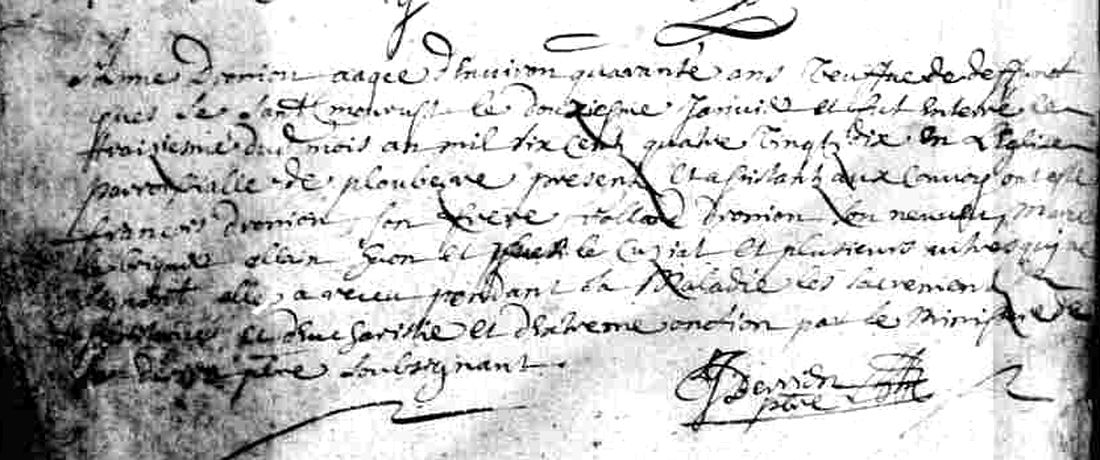 Janne Dronion aagée d'Environ quarante ans Veuffve de deffunct
yves Le Mourust le douziesme Janvier et fut Enterré le
traiziesme dud mois an mil six cent quatre Vingt dix En L'Eglise
parrochialle de ploubezre present Et assistant aux Convoy ont esté
francois dronion son frere rolland dronion son nepveu, Marie
le allain huon et le Cuziat Et plusieurs autres qui ne
signent elle a receu pendant la Maladie les sacrements
de penitance, et d'Eucharistie et d'Extreme onction par le Ministere de
pbre soubsignant.
Derrien
pbre